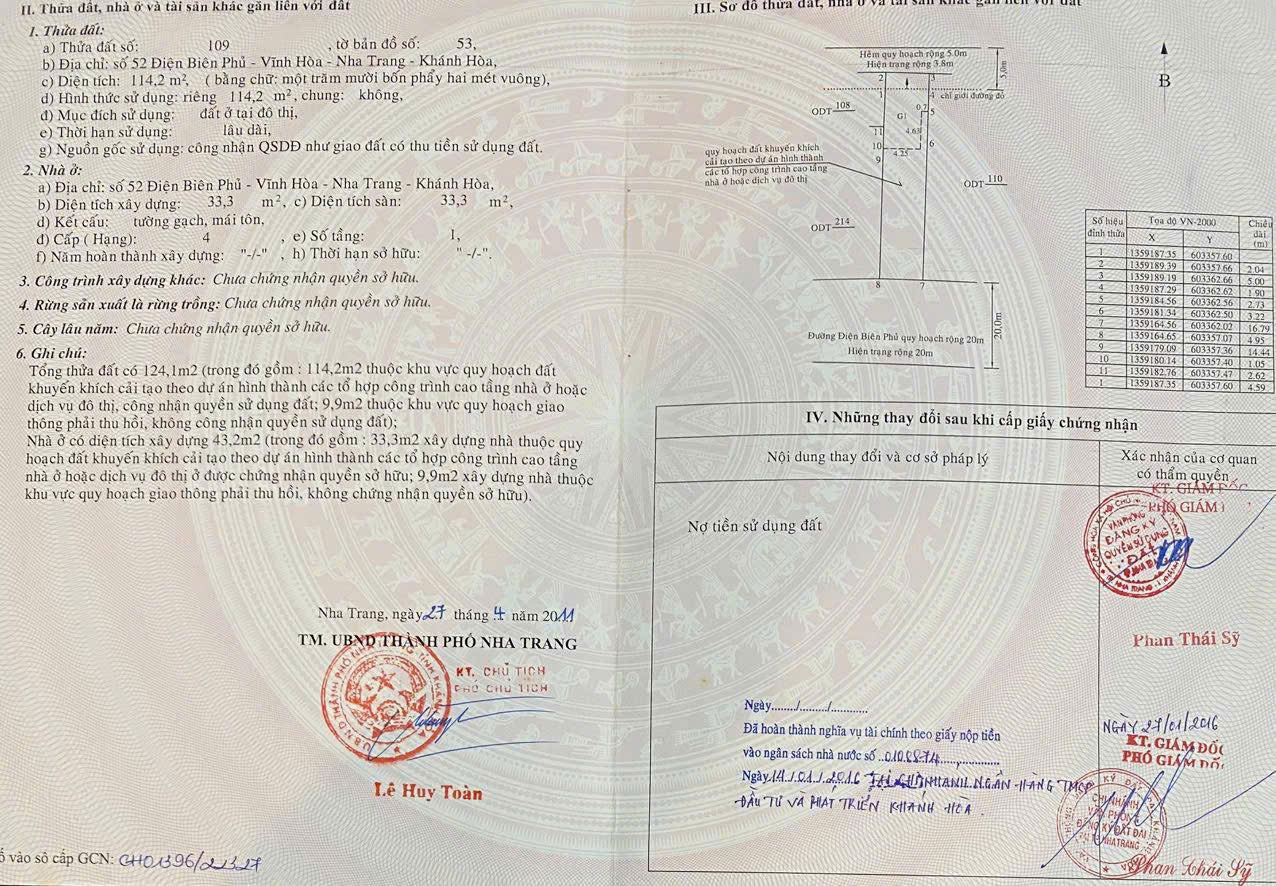 II. Thửa đất, nhà ở và tài sản khác gắn liền với đất
1. Thửa đất:
a) Thửa đất số: 109 , tờ bản đồ số: 53,
b) Địa chỉ: số 52 Điện Biên Phủ - Vĩnh Hòa - Nha Trang - Khánh Hòa,
c) Diện tích: 114,2 m², ( bằng chữ: một trăm mười bốn phẩy hai mét vuông),
d) Hình thức sử dụng: riêng 114,2 m², chung: không,
đ) Mục đích sử dụng: đất ở tại đô thị,
e) Thời hạn sử dụng: lâu dài,
g) Nguồn gốc sử dụng: công nhận QSDĐ như giao đất có thu tiền sử dụng đất.
2. Nhà ở:
a) Địa chỉ: số 52 Điện Biên Phủ - Vĩnh Hòa - Nha Trang - Khánh Hòa,
b) Diện tích xây dựng: 33,3 m², c) Diện tích sàn: 33,3 m²,
d) Kết cấu: tường gạch, mái tôn,
đ) Cấp ( Hạng): 4 , e) Số tầng: 1,
f) Năm hoàn thành xây dựng: "-/-" , h) Thời hạn sở hữu: " -/-".
3. Công trình xây dựng khác: Chưa chứng nhận quyền sở hữu.
4. Rừng sản xuất là rừng trồng: Chưa chứng nhận quyền sở hữu.
5. Cây lâu năm: Chưa chứng nhận quyền sở hữu.
6. Ghi chú:
Tổng thửa đất có 124,1m2 (trong đó gồm : 114,2m2 thuộc khu vực quy hoạch đất
khuyến khích cải tạo theo dự án hình thành các tổ hợp công trình cao tầng nhà ở hoặc
dịch vụ đô thị, công nhận quyền sử dụng đất; 9,9m2 thuộc khu vực quy hoạch giao
thông phải thu hồi, không công nhận quyền sử dụng đất);
Nhà ở có diện tích xây dựng 43,2m2 (trong đó gồm : 33,3m2 xây dựng nhà thuộc quy
hoạch đất khuyến khích cải tạo theo dự án hình thành các tổ hợp công trình cao tầng
nhà ở hoặc dịch vụ đô thị ở được chứng nhận quyền sở hữu; 9,9m2 xây dựng nhà thuộc
khu vực quy hoạch giao thông phải thu hồi, không chứng nhận quyền sở hữu).
Nha Trang, ngày 27 tháng 4 năm 2011
TM. UBND THÀNH PHỐ NHA TRANG
KT. CHỦ TỊCH
PHÓ CHỦ TỊCH
Lê Huy Toàn
ổ vào sổ cấp GCN: CH01396/21327
III. Sơ đồ thửa đất, nhà ở và tài sản khác gắn liền với đất
Hẻm quy hoạch rộng 5.0m
Hiện trạng rộng 3.8m
5,0m
B
2 3
1 4 chỉ giới đường đỏ
ODT 108
0.7 5
G1
4.63
11
10 4.25 6
9
quy hoạch đất khuyến khích
cải tạo theo dự án hình thành
các tổ hợp công trình cao tầng
nhà ở hoặc dịch vụ đô thị
ODT 110
ODT 214
8 7
20,0m
Đường Điện Biên Phủ quy hoạch rộng 20m
Hiện trạng rộng 20m
Số hiệu đỉnh thửa Tọa độ VN-2000 Chiều dài (m)
X Y
1 1359187.35 603357.60
2 1359189.39 603357.66 2.04
3 1359189.19 603362.66 5.00
4 1359187.29 603362.62 1.90
5 1359184.56 603362.56 2.73
6 1359181.34 603362.50 3.22
7 1359164.56 603362.02 16.79
8 1359164.65 603357.07 4.95
9 1359179.09 603357.36 14.44
10 1359180.14 603357.40 1.05
11 1359182.76 603357.47 2.62
1 1359187.35 603357.60 4.59
IV. Những thay đổi sau khi cấp giấy chứng nhận
Nội dung thay đổi và cơ sở pháp lý
Xác nhận của cơ quan
có thẩm quyền
Nợ tiền sử dụng đất
KT. GIÁM ĐỐC
PHÓ GIÁM
VĂN PHÒNG
ĐĂNG KÝ
QUYỀN SỬ DỤNG
ĐẤT
Phan Thái Sỹ
Ngày......./......../............
Đã hoàn thành nghĩa vụ tài chính theo giấy nộp tiền
vào ngân sách nhà nước số ..0108874..............
Ngày 14./.01./.2016 TẠI CHI NHÁNH NGÂN HÀNG TMCP
ĐẦU TƯ VÀ PHÁT TRIỂN KHÁNH HÒA .
NGÀY 27/01/2016
KT. GIÁM ĐỐC
PHÓ GIÁM ĐỐC
CHI NHÁNH
VĂN PHÒNG
ĐĂNG KÝ ĐẤT ĐAI
TẠI TP NHA TRANG
Phan Thái Sỹ